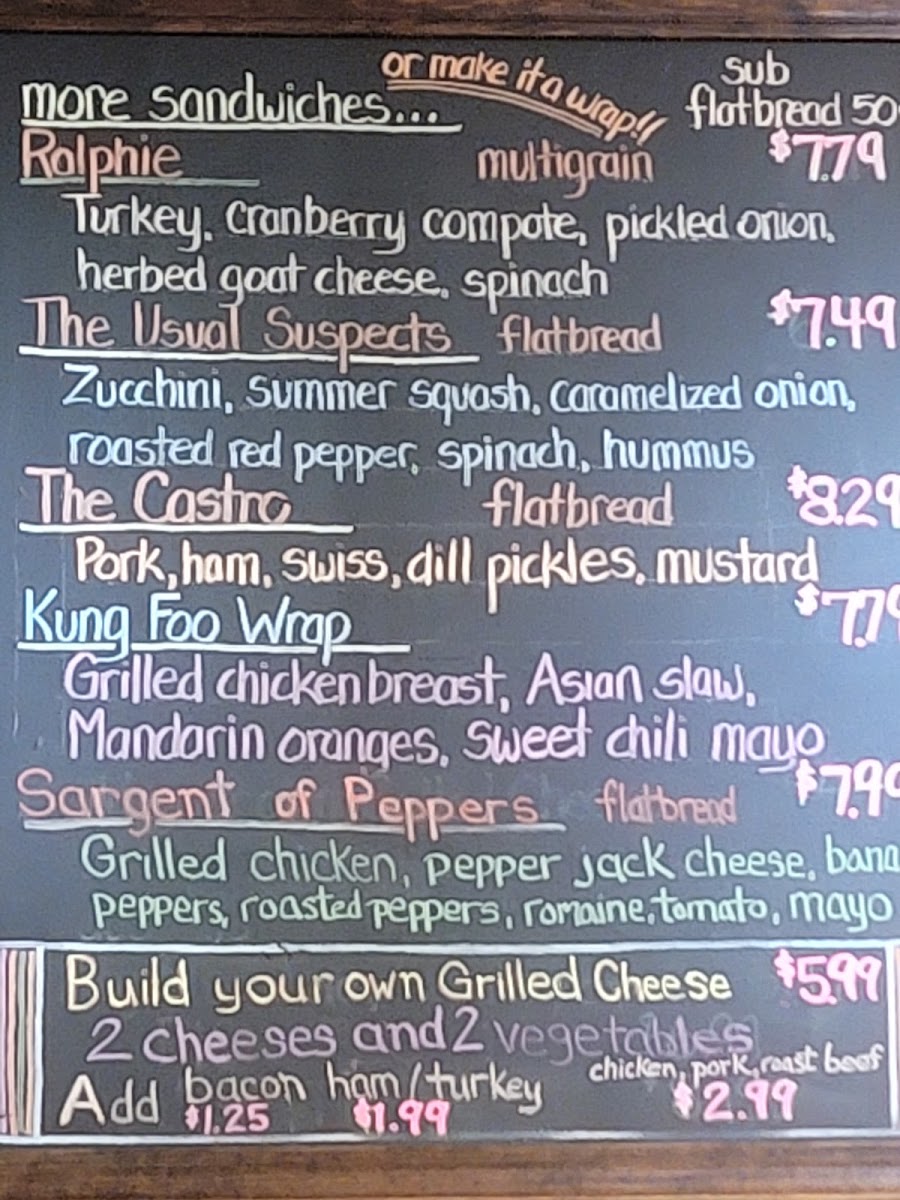 or make it a wrap!!
more sandwiches...
sub
flatbread 50
Ralphie multigrain $7.79
Turkey, cranberry compote, pickled onion,
herbed goat cheese, spinach
The Usual Suspects flatbread $7.49
Zucchini, summer squash, caramelized onion,
roasted red pepper, spinach, hummus
The Castro flatbread $8.29
Pork, ham, swiss, dill pickles, mustard
Kung Foo Wrap $7.79
Grilled chicken breast, Asian slaw,
Mandarin oranges, sweet chili mayo
Sargent of Peppers flatbread $7.99
Grilled chicken, pepper jack cheese, bana
peppers, roasted peppers, romaine, tomato, mayo
Build your own Grilled Cheese $5.99
2 cheeses and 2 vegetables
Add bacon ham/turkey chicken, pork, roast beef
$1.25 $1.99 $2.99